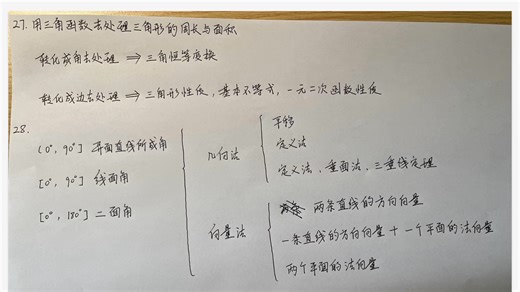 27. 用三角函数去处理三角形的周长与面积
转化成角去处理 ⇒ 三角恒等变换
转化成边去处理 ⇒ 三角形性质，基本不等式，一元二次函数性质
28.
(0°, 90°] 异面直线所成角
[0°, 90°] 线面角
[0°, 180°] 二面角
几何法
平移
定义法
定义法，垂面法，三垂线定理
向量法
两条直线的方向向量
一条直线的方向向量 + 一个平面的法向量
两个平面的法向量